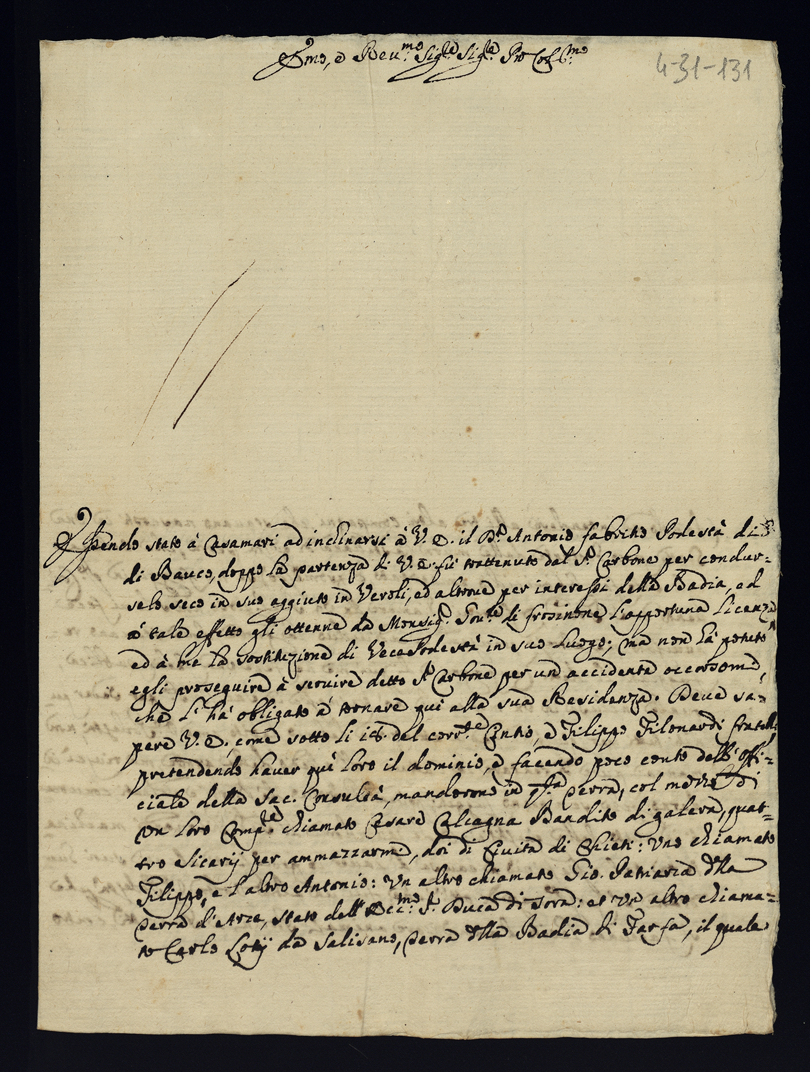 Ill.mo, e Rev.mo Sig.re Sig.re P'ron Col.mo
4-31-131
Essendo stato à Casamari ad inclinarsi à V. E. il D.r Antonio Fabritio Podestà
di Bauco, doppo la partenza di V. E. fù trattenuto dal S.r Carbone per condur-
selo seco in suo aggiuto in Veroli, ed altrove per interessi della Badia, ed
a tale effetto gli ottenne da Monsig.r Gov.re di Frosinone l'opportuna licenza
ed à me la sostituzione di Vece Podestà in suo luogo; ma non hà potuto
egli proseguire à servire detto S.r Carbone per un accidente occorsome,
che l'hà obligato à tornare qui alla sua Residenza. Deve sa-
pere V. E. come sotto li 18. del corr.te Antio, e Filippo Filonardi fratelli
pretendendo haver quì loro il dominio, e facendo poco conto dell'offi-
ciale della Sac. Consulta, mandorono in q.sta Terra, col mezzo di
un loro Comp.e chiamato Cesare Calcagna Bandito di galera, quat-
tro sicarij per ammazzarme, doi di Civita di Chieti: uno chiamato
Filippo, e l'altro Antonio: un altro chiamato Gio. Patriarca d'lla
Terra d'Arce, stato dell'Ecc.mo S.r Duca di Sora: et un altro chiama-
to Carlo Lotij da Salisano, Terra d'lla Badia di Farfa, il quale